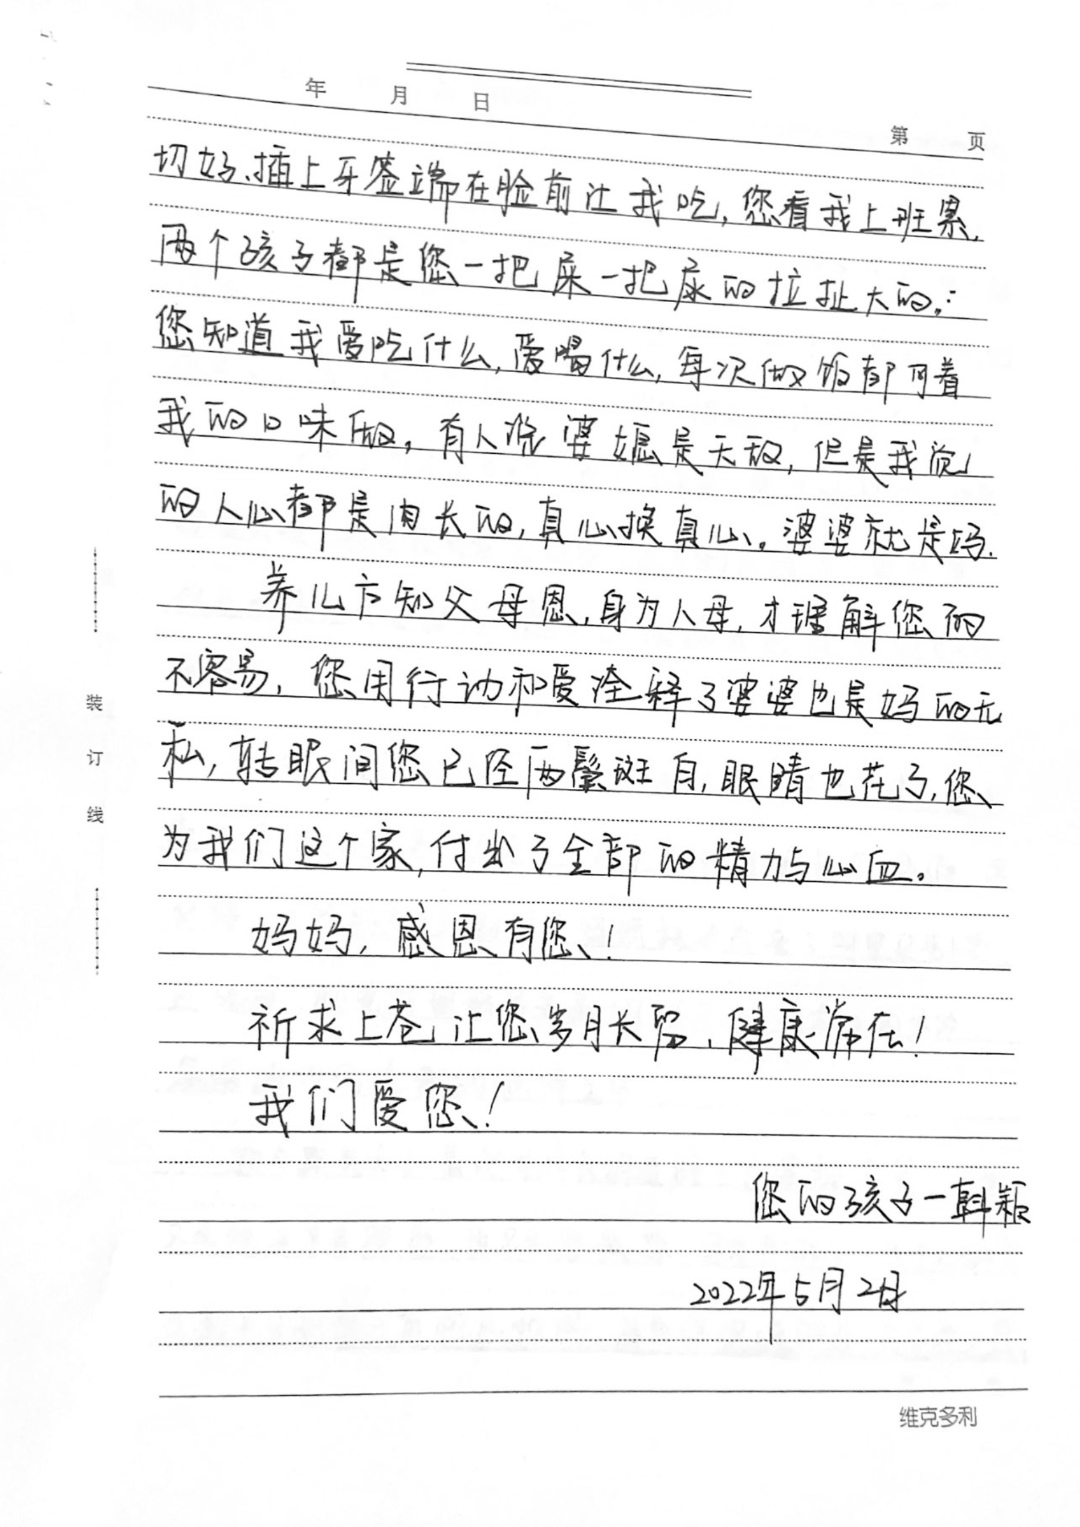 年 月 日
第 页
切好、插上牙签端在脸前让我吃，您看我上班累，
两个孩子都是您一把屎一把尿的拉扯大的；
您知道我爱吃什么，爱喝什么，每次做饭都可着
我的口味做，有人说婆媳是天敌，但是我说
的人心都是肉长的，真心换真心。婆婆就是妈.
养儿方知父母恩，身为人母，才理解您的
不容易，您用行动和爱诠释了婆婆也是妈的无
私，转眼间您已经两鬓斑白，眼睛也花了，您
为我们这个家，付出了全部的精力与心血。
妈妈，感恩有您！
祈求上苍，让您岁月长留，健康常在！
我们爱您！
您的孩子一韩颖
2022年5月2日
装订线
维克多利